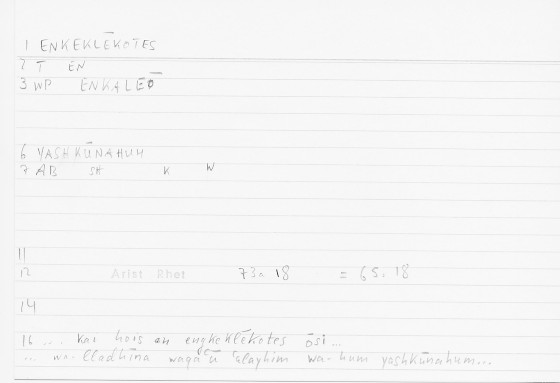 1 ENKEKLĒKOTES
2 T EN
3 WP ENKALEŌ
6 YASHKŪNAHUM
7 AB SH K W
11
12 Arist Rhet 73a 18 = 65.18
14
16 ... kai hois an engkeklēkotes ōsi...
... wa-lladhīna waqaʿū ʿalayhim wa-hum yashkūnahum...